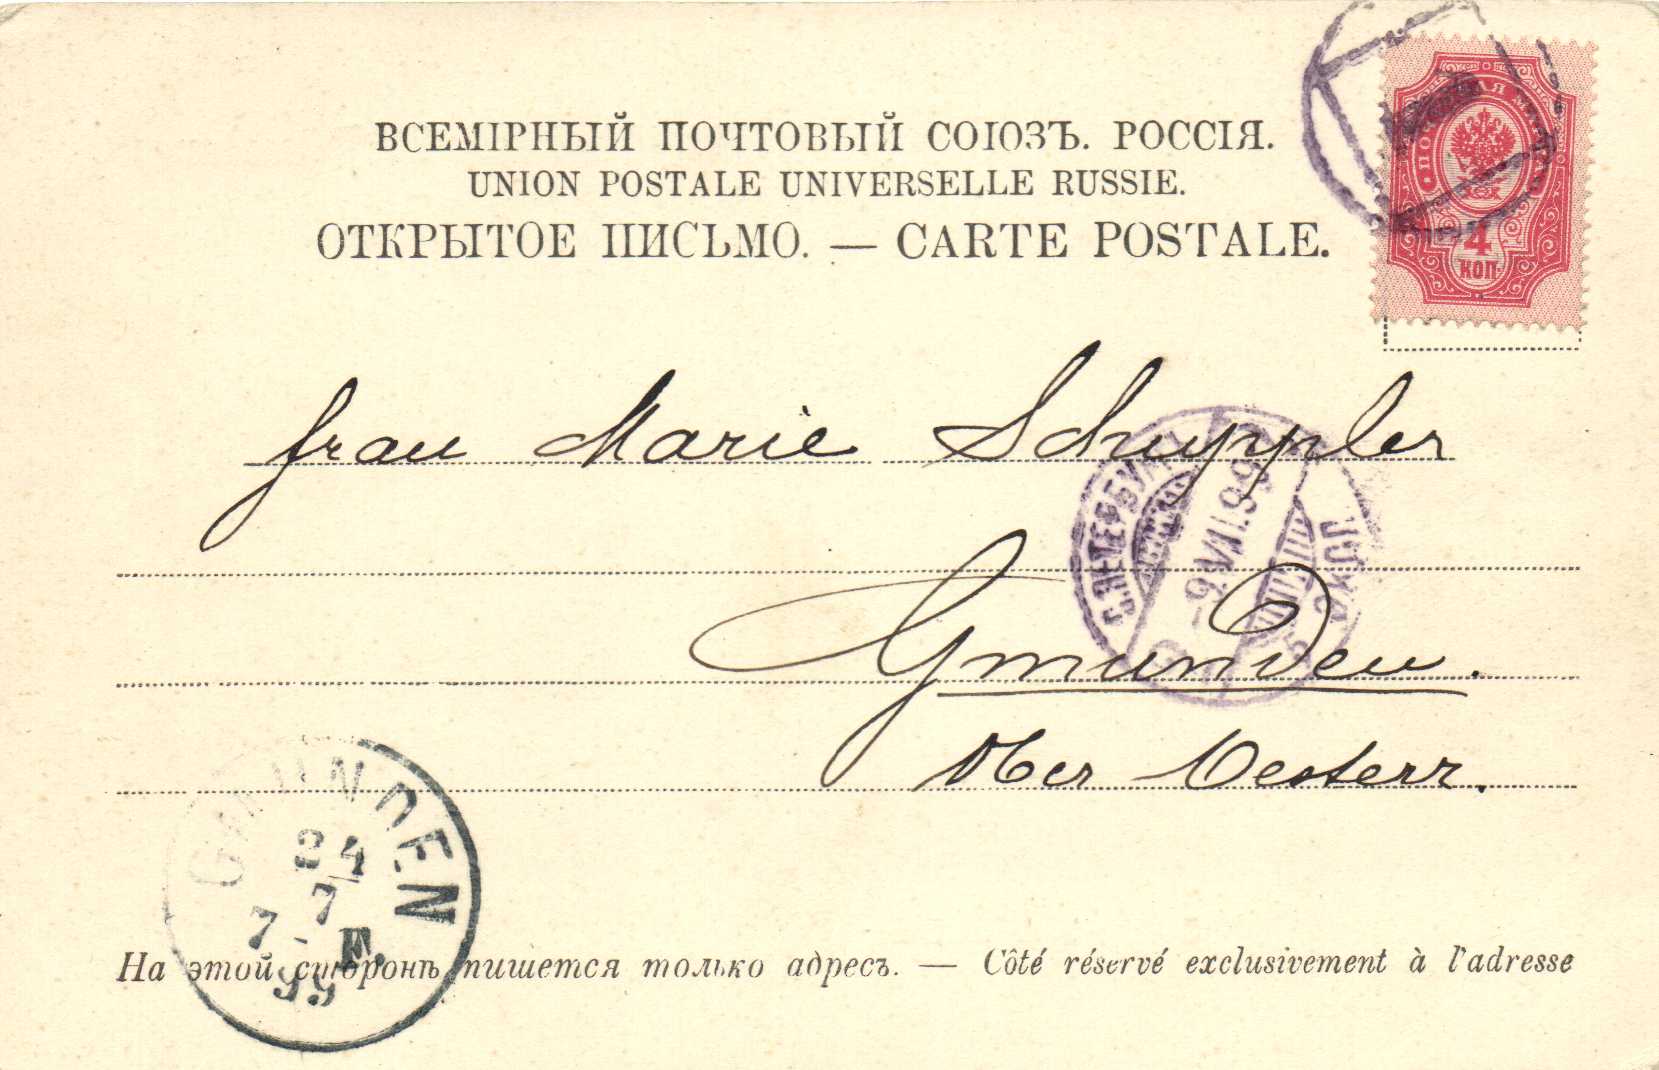 ВСЕМІРНЫЙ ПОЧТОВЫЙ СОЮЗЪ. РОССІЯ.
UNION POSTALE UNIVERSELLE RUSSIE.
ОТКРЫТОЕ ПИСЬМО. — CARTE POSTALE.
4
КОП.
Frau Marie Schuppler
С.ПЕТЕРБУРГ
-9.VII.99
Gmunden.
Ober Oesterr.
GMUNDEN
24
7
7 - F.
99
На этой сторонѣ пишется только адресъ. — Côté réservé exclusivement à l'adresse